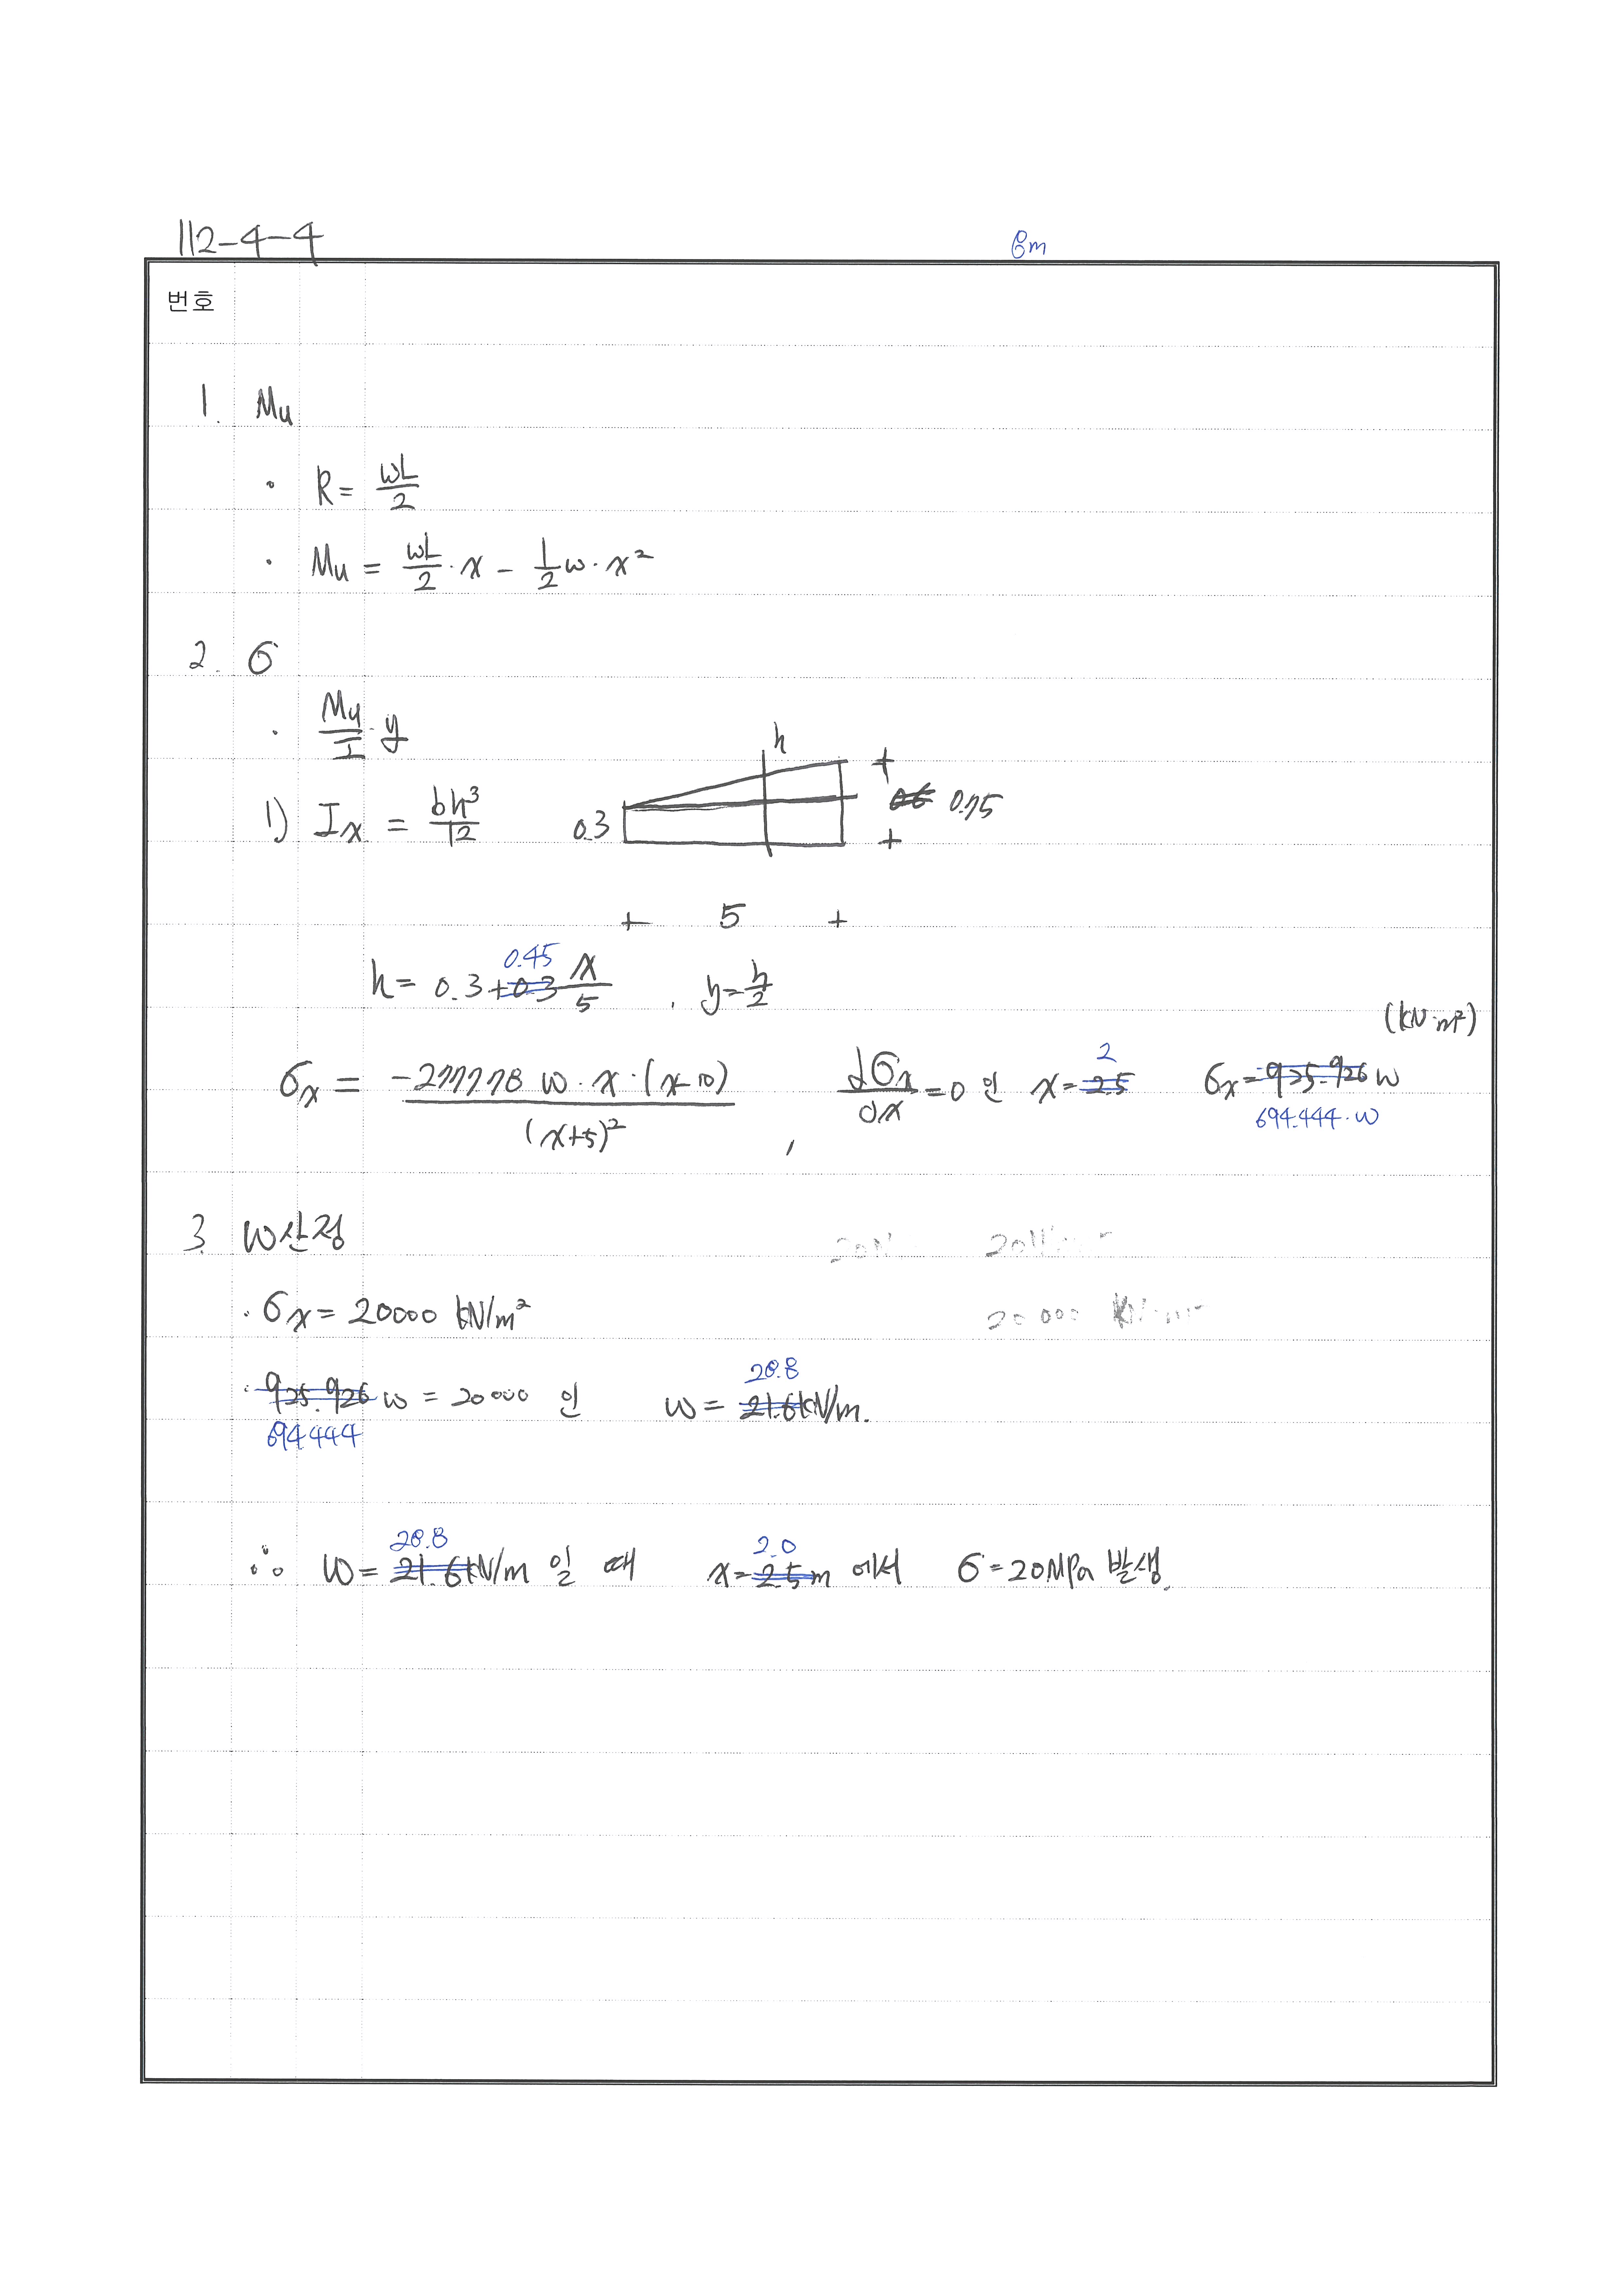 112-4-4
6m
번호
1. Mu
· R = wL/2
· Mu = wL/2 · x - 1/2 w · x²
2. σ
· Mu/I · y
1) Ix = bh³/12
h
0.3
0.6 0.75
5
h = 0.3 + 0.3 0.45 x/5 , y = h/2
(kN·m²)
σx = -2777.78 w · x · (x-10) / (x+5)² , dσx/dx = 0 인 x = 2.5 2 σx = 925.926 w
694.444 · w
3. w산정
20 000
· σx = 20000 kN/m²
· 925.926 w = 20000 인 w = 21.6 28.8 kN/m.
694.444
∴ w = 21.6 28.8 kN/m 일 때 x = 2.5 2.0 m 에서 σ = 20MPa 발생.